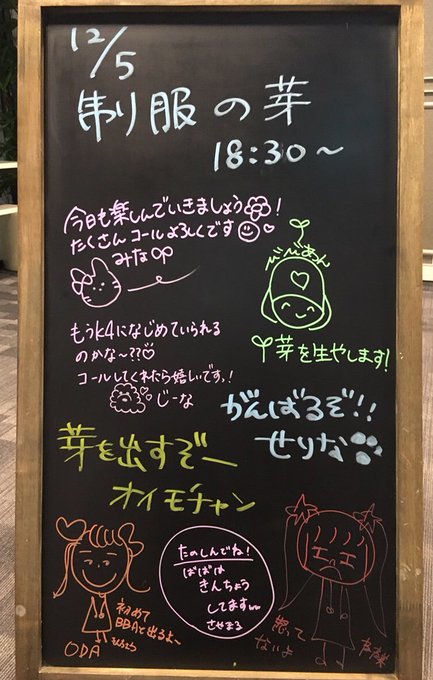 12/5
制服の芽
18:30～
今日も楽しんでいきましょう!
たくさんコールよろしくです
みな
びびあん
芽を生やします!
もうK4になじめていられる
のかな～??
コールしてくれたら嬉しいです!
じーな
がんばるぞ!!
せりな
芽を出すぞー
オイモチャン
たのしんでね!
ばばは
きんちょう
してますww
さやまる
初めて
BBAと出るよ～
ODA
怒って
ないよ